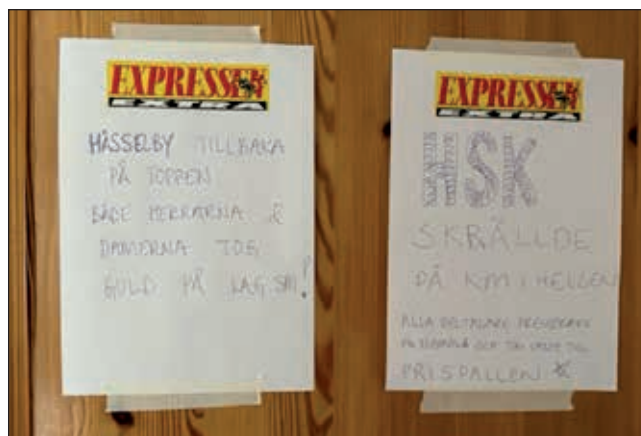 EXPRESSEN
EXTRA
HÄSSELBY TILLBAKA
PÅ TOPPEN
BÅDE HERRARNA &
DAMERNA TOG
GULD PÅ LAG SM!
EXPRESSEN
EXTRA
HSK
SKRÄLLDE
PÅ KM I HELGEN
ALLA DELTAGARE PRESTERADE
OCH TOG
PRISPALLEN